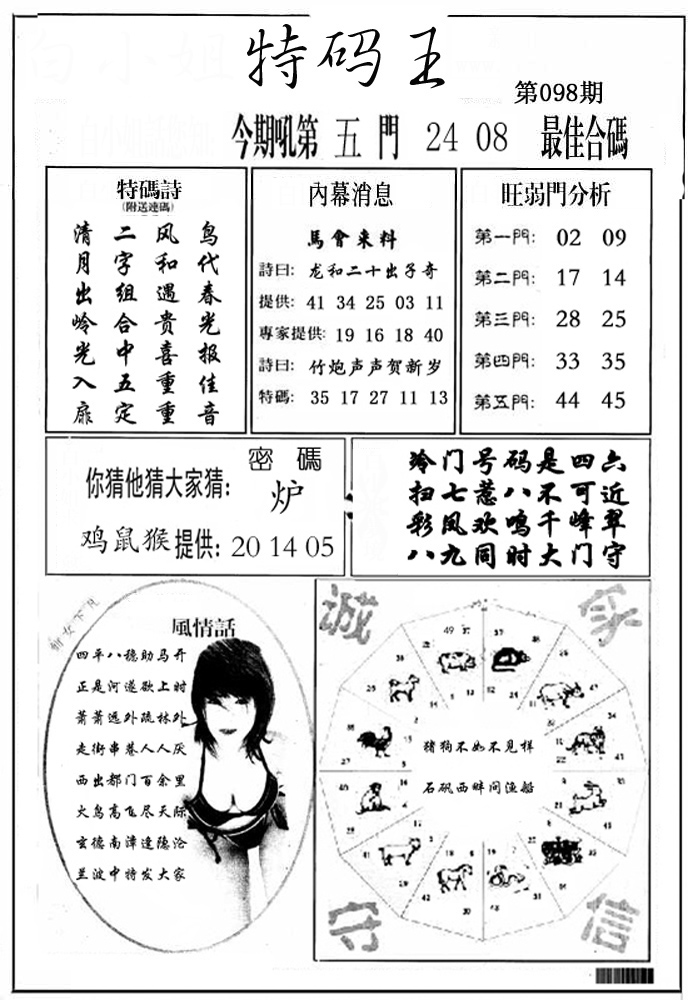 特码王
第098期
今期吼第 五 門 24 08 最佳合碼
特碼詩
(附送連碼)
清 二 风 鸟
月 字 和 代
出 组 遇 春
岭 合 貴 光
光 中 喜 报
入 五 重 佳
扉 定 重 音
內幕消息
馬會来料
詩曰: 龙和二十出子奇
提供: 41 34 25 03 11
專家提供: 19 16 18 40
詩曰: 竹炮声声贺新岁
特碼: 35 17 27 11 13
旺弱門分析
第一門: 02 09
第二門: 17 14
第三門: 28 25
第四門: 33 35
第五門: 44 45
密碼
你猜他猜大家猜: 炉
鸡鼠猴提供: 20 14 05
冷门号码是四六
扫七惹八不可近
彩凤欢鸣千峰翠
八九同时大门守
風情話
四平八稳助马开
正是河遂欲上时
萧萧远外疏林外
走街串巷人人厌
西出都门百余里
大鸟高飞尽天际
玄德南漳逢隐沦
兰波中特发大家
诚
家
猪狗不如不见样
石矾西畔问渔船
守
信